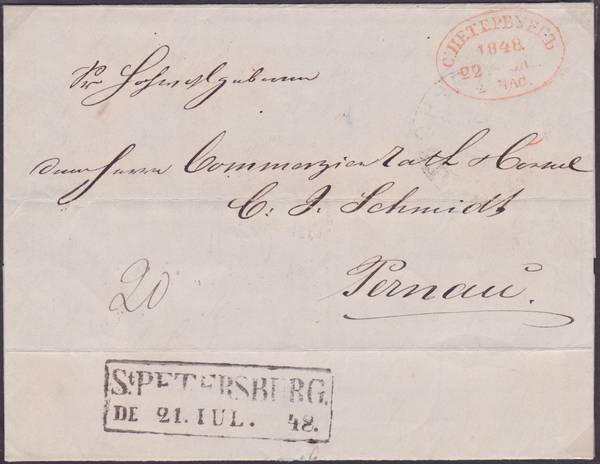 С.ПЕТЕРБУРГЪ
1848
22
2 ЧАС.
Sr Hochwohlgeboren
dem Herrn Commerzien Rath & Consul
C. J. Schmidt
Pernau.
20
St PETERSBURG.
DE 21. IUL. 48.